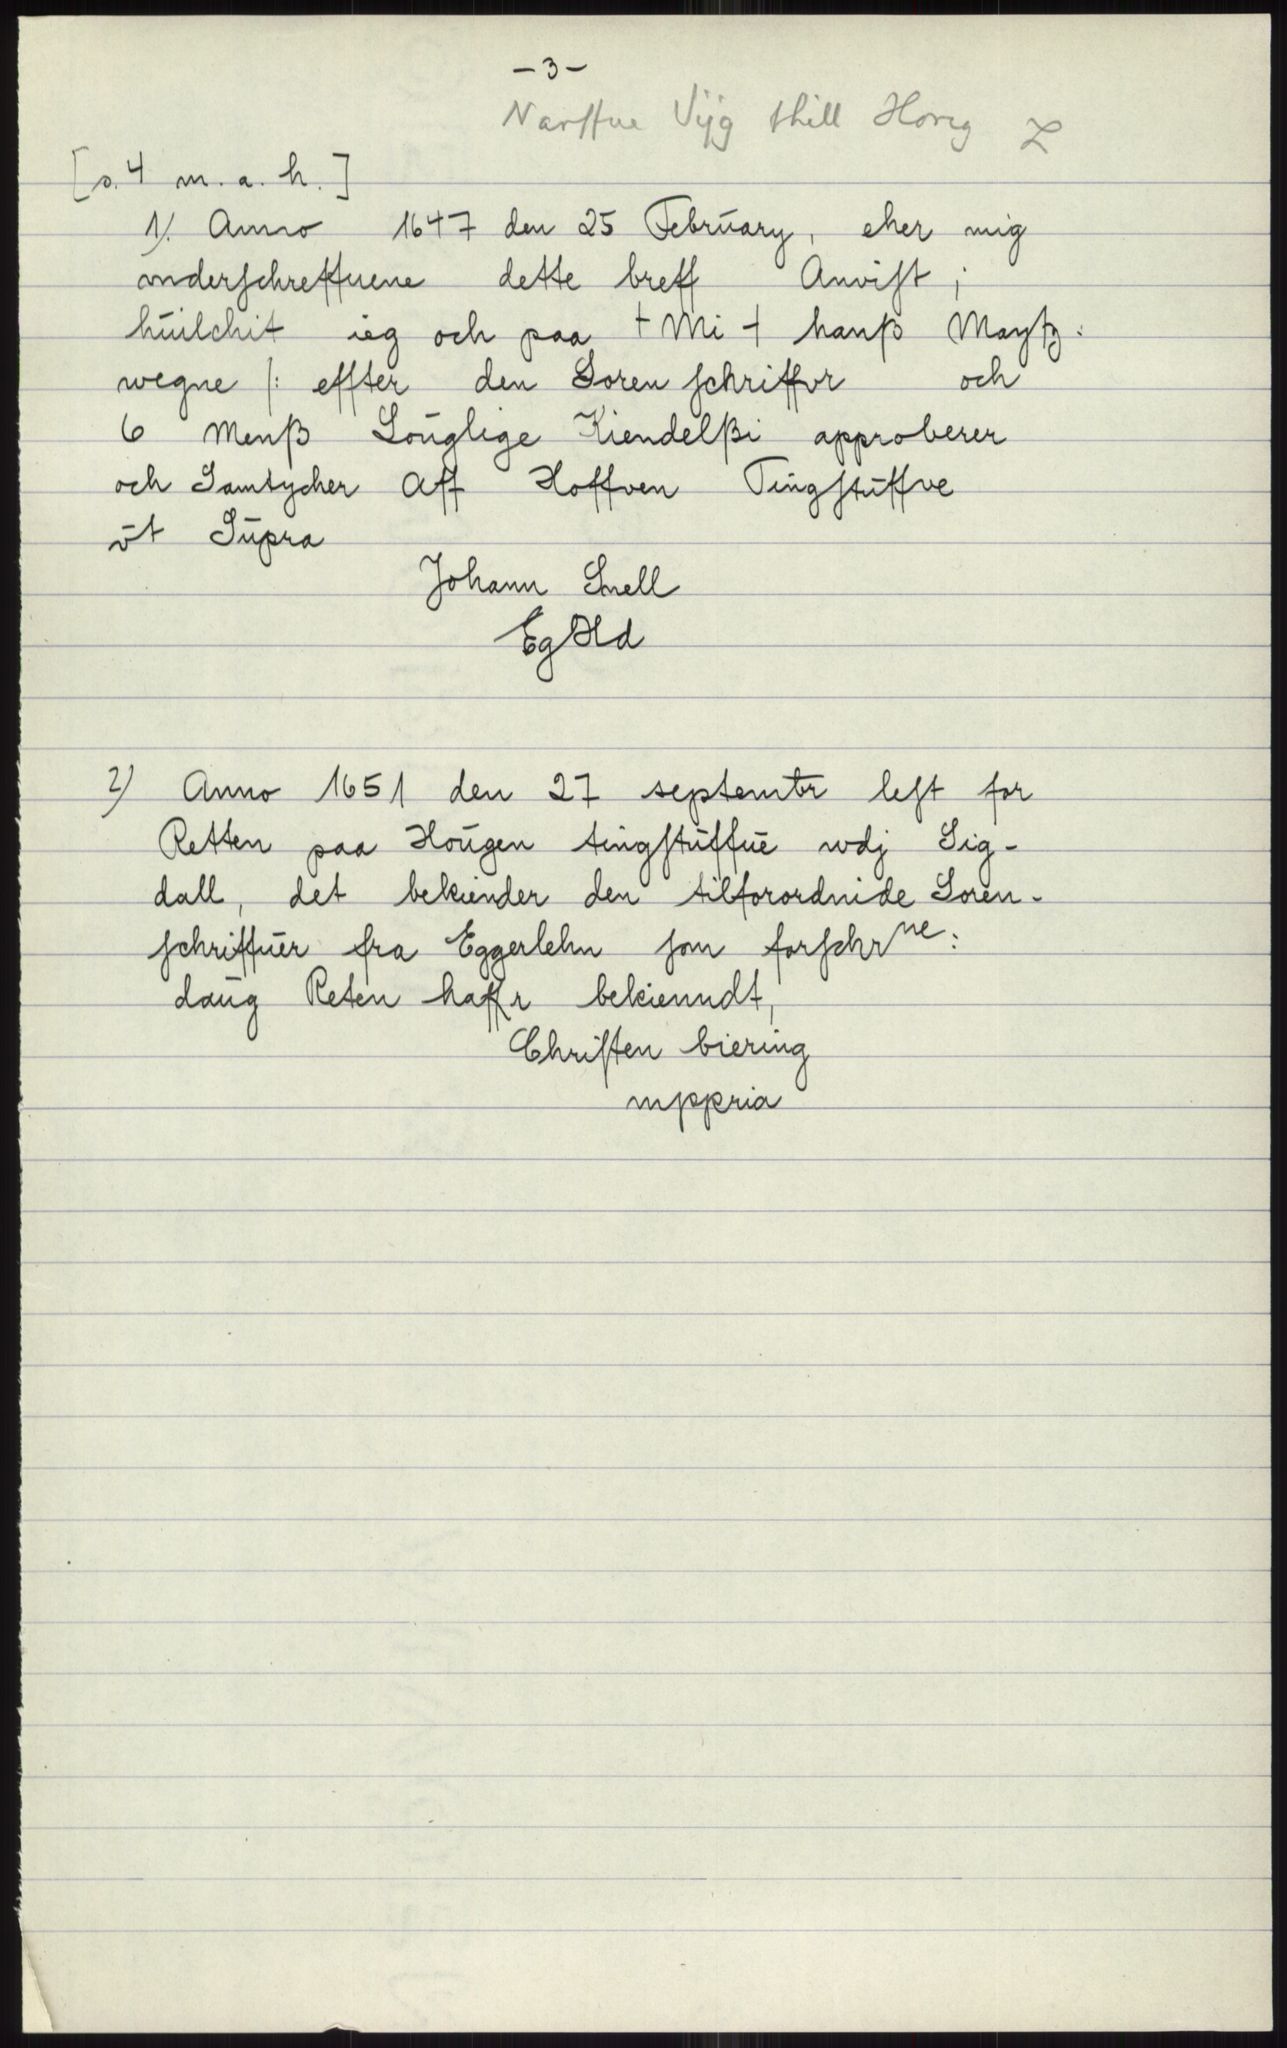 -3-
Narffue Vijg thill Horeg Z
[s. 4 m. a. h.]
1). Anno 1647 den 25 Februarÿ, eher mig
vnderschreffuene dette breff Anvist;
huilchit ieg och paa + Mi + hanß Maytz.
wegne /: effter den Soren schriffvr och
6 Menß Louglige Kiendelßi approberer
och Samtycher Aff Hoffven Tingstuffve
ut Supra
Johann Snell
Eg Hd
2) Anno 1651 den 27 septembr lest for
Retten paa Hougen tingstuffue wdj Sig-
dall, det bekiender den tilforordnide Soren-
schriffuer fra Eggerlehn som forschrne:
laug Reten haffr bekienndt,
Christen biering
mppria